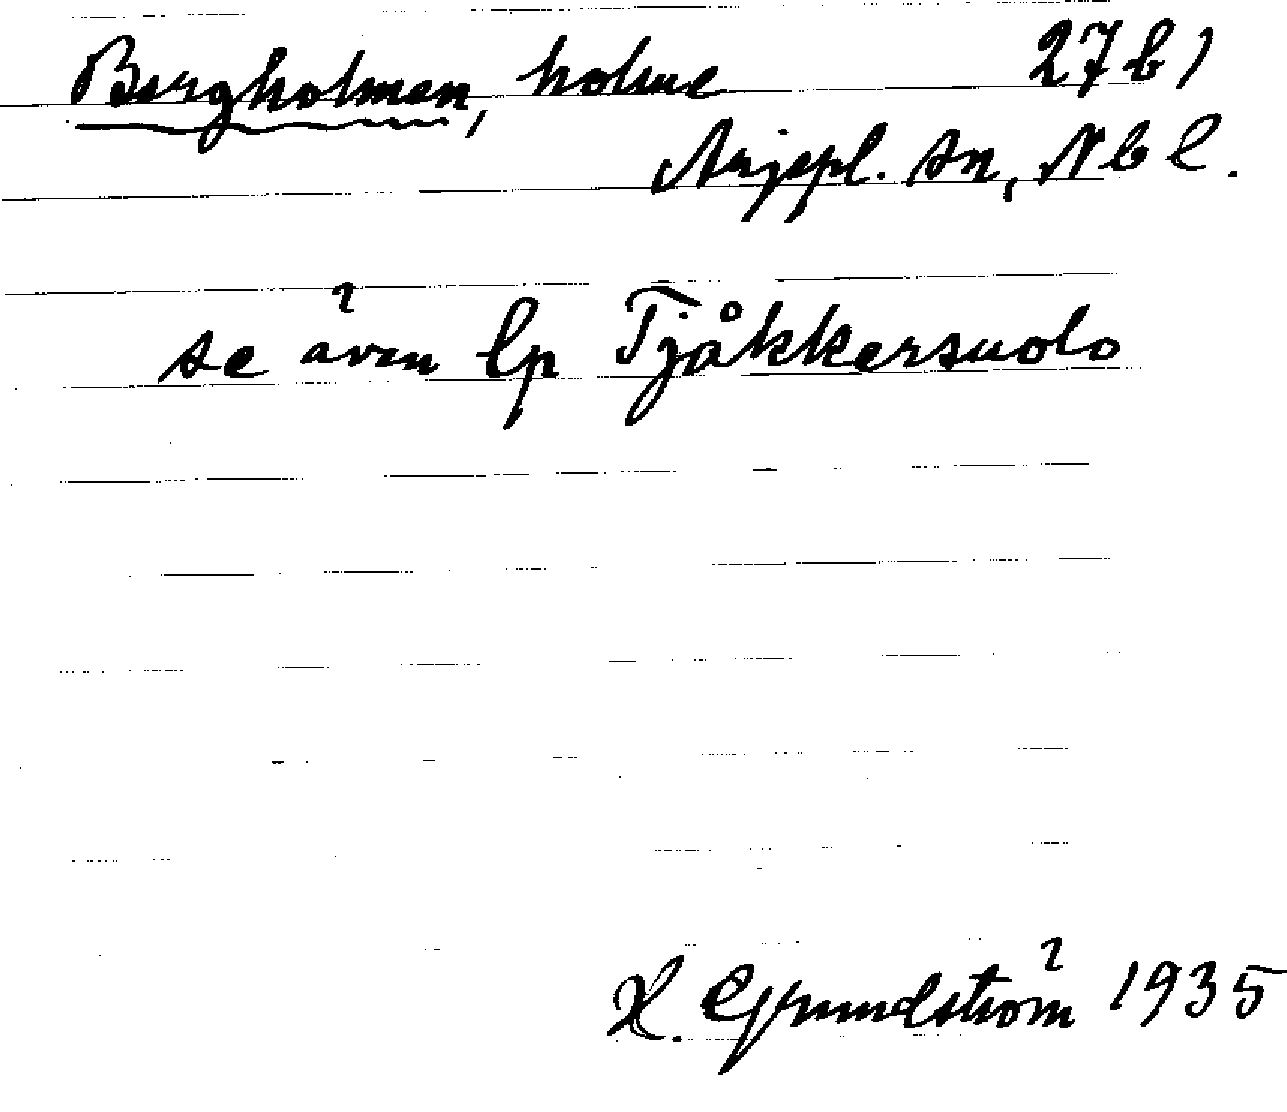 Bergholmen, holme 27b1
Arjepl. sn, Nb l.
se även lp Tjåkkersuolo
H. Grundström 1935